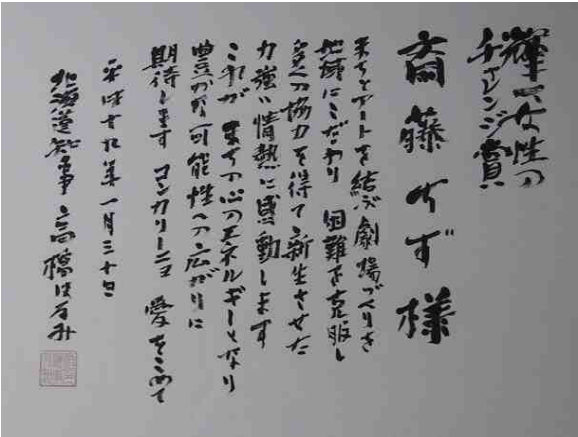 輝く女性の
チャレンジ賞
斎藤ちず様
まちとアートを結ぶ劇場づくりを
地域にこだわり 困難を克服し
多くの協力を得て新生させた
力強い情熱に感動します
これがまちの心のエネルギーとなり
豊かな可能性への広がりに
期待します コンカリーニョ 愛をこめて
平成十九年一月三十日
北海道知事 高橋はるみ